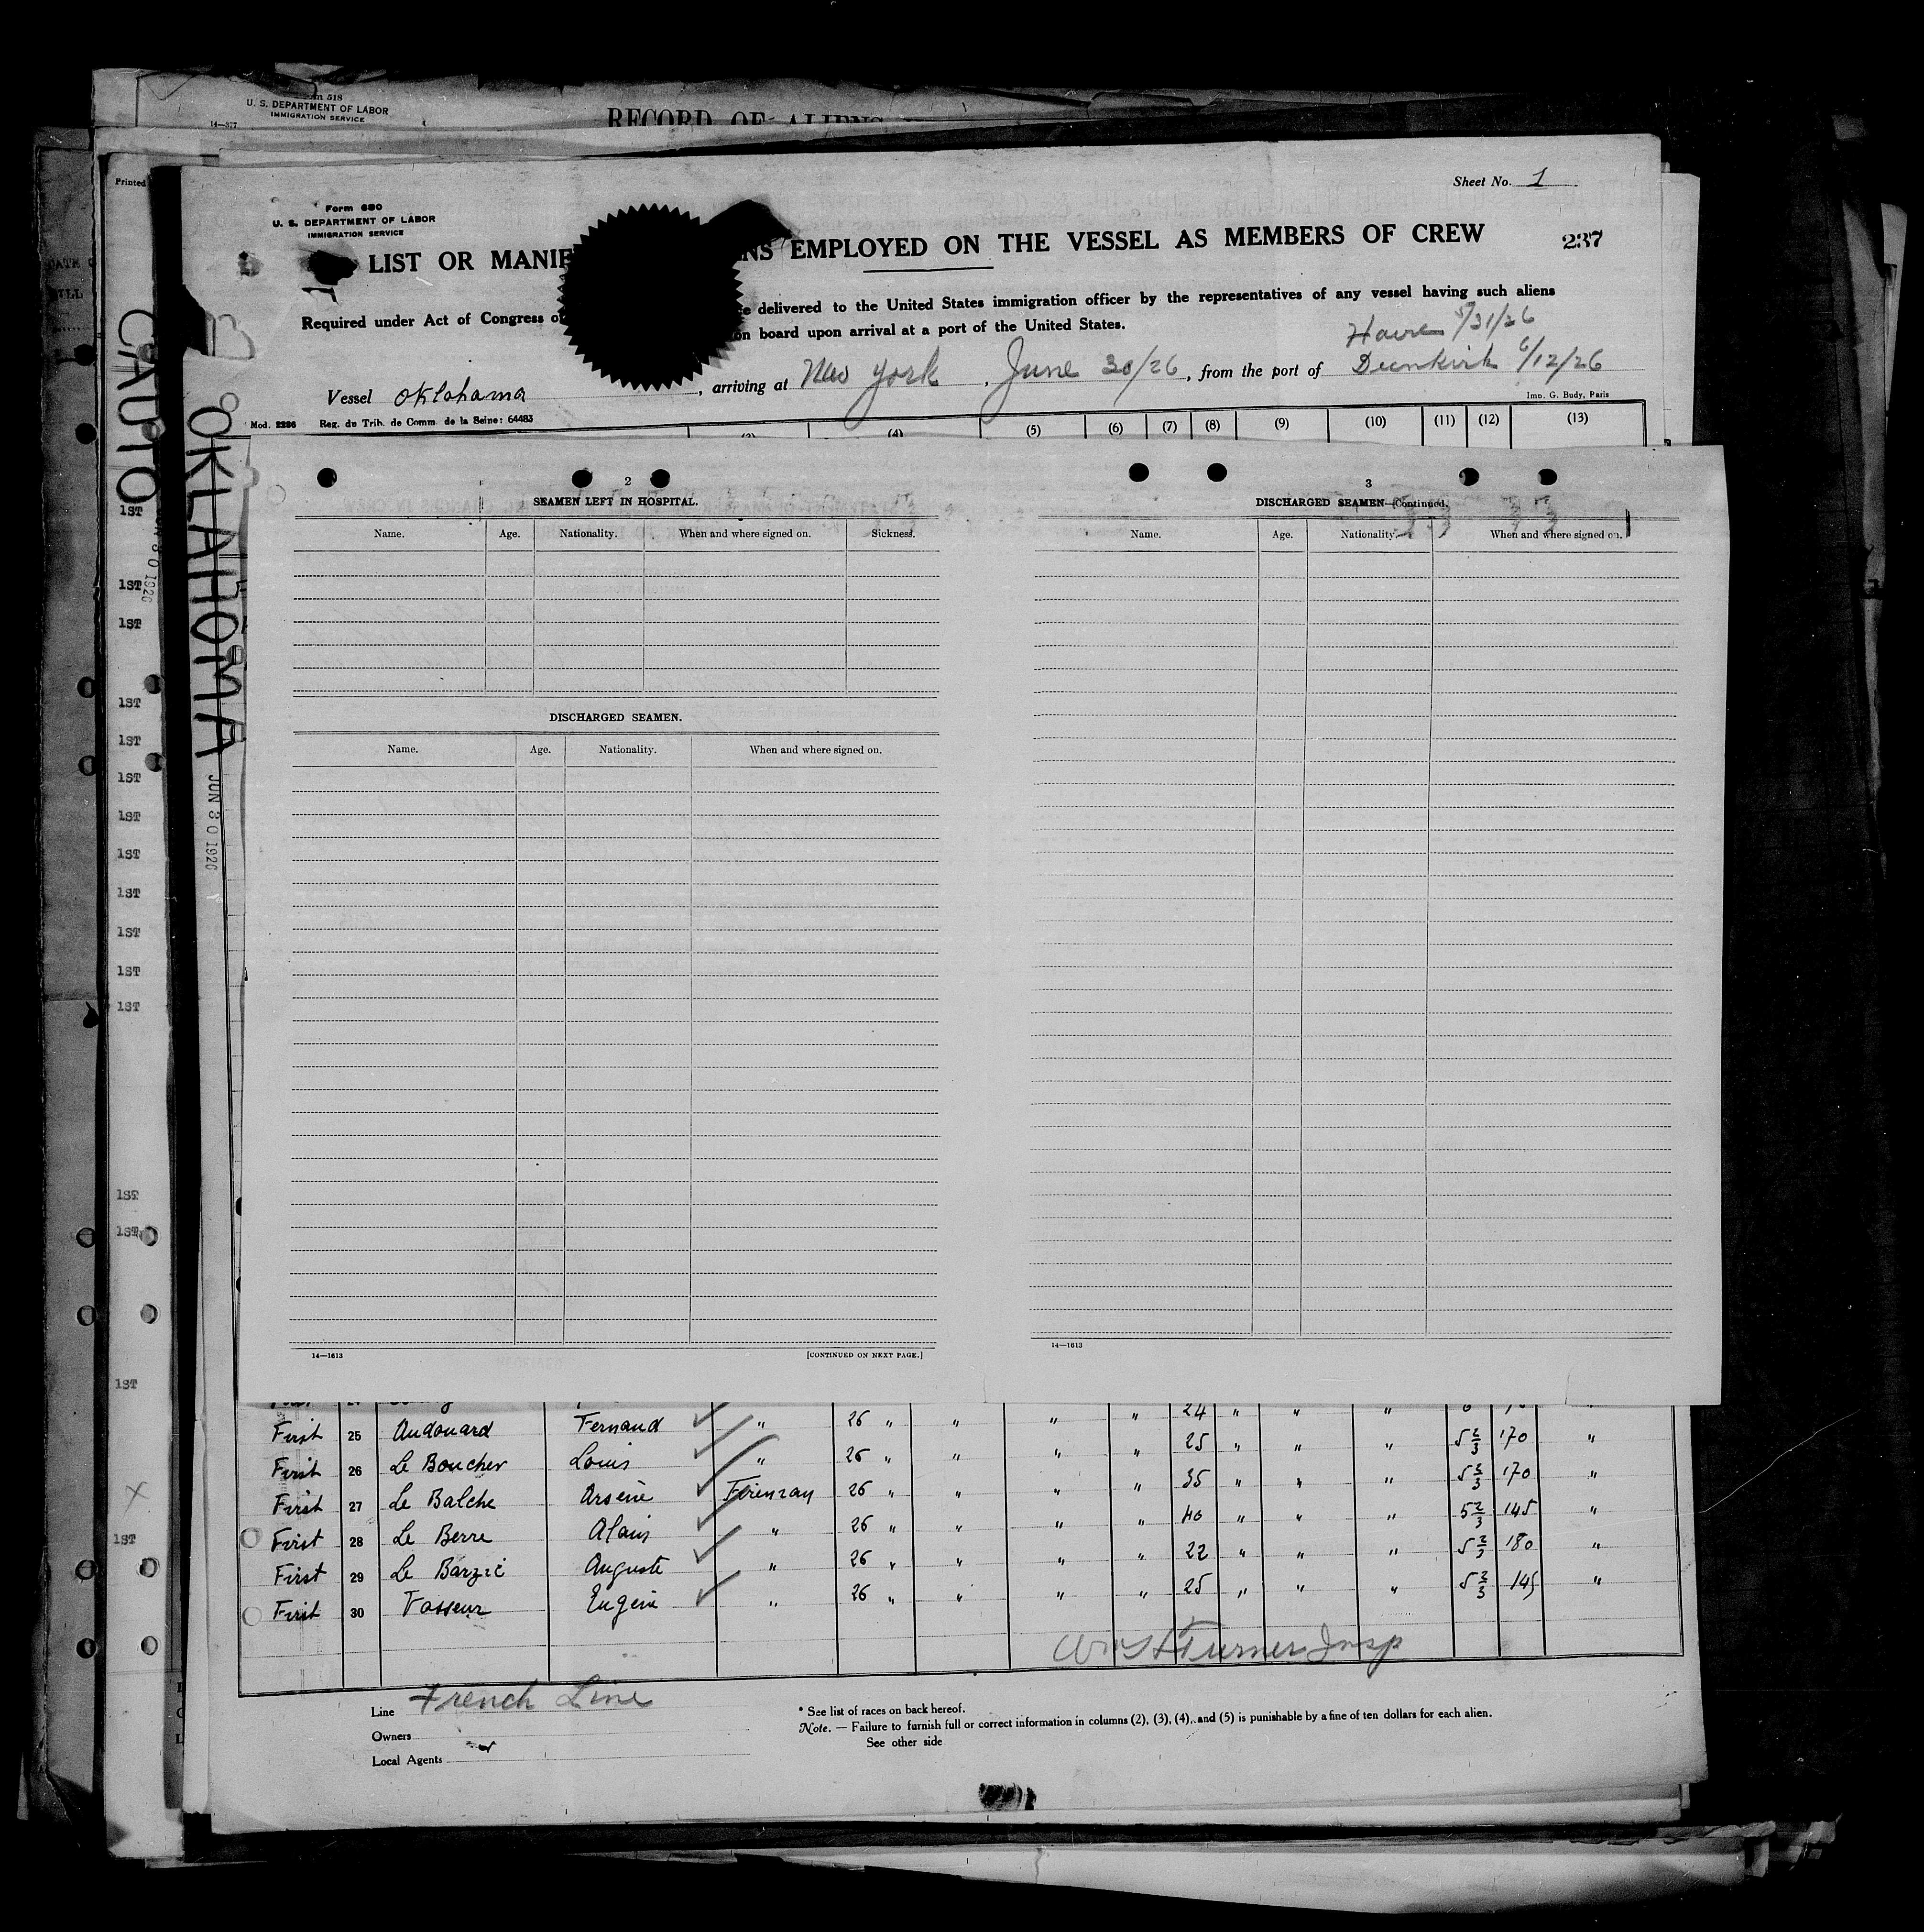 Form 518
U. S. DEPARTMENT OF LABOR
IMMIGRATION SERVICE
14—377
RECORD OF ALIENS
Printed
Sheet No. 1
Form 680
U. S. DEPARTMENT OF LABOR
IMMIGRATION SERVICE
LIST OR MANIF NS EMPLOYED ON THE VESSEL AS MEMBERS OF CREW
237
Required under Act of Congress of e delivered to the United States immigration officer by the representatives of any vessel having such aliens
on board upon arrival at a port of the United States.
Havre 5/31/26
Vessel Oklahoma, arriving at New York, June 30/26, from the port of Dunkirk 6/12/26
Imp. G. Budy, Paris
Mod. 2286 Reg. du Trib. de Comm. de la Seine: 64483
(3) (4) (5) (6) (7) (8) (9) (10) (11) (12) (13)
CAUTO
OKLAHOMA
JUN 30 1926
2
SEAMEN LEFT IN HOSPITAL.
Name. Age. Nationality. When and where signed on. Sickness.
DISCHARGED SEAMEN.
Name. Age. Nationality. When and where signed on.
14—1613 [CONTINUED ON NEXT PAGE.]
3
DISCHARGED SEAMEN—Continued.
Name. Age. Nationality. When and where signed on.
14—1613
1ST
1ST
1ST
1ST
1ST
1ST
1ST
1ST
1ST
1ST
1ST
1ST
1ST
1ST
1ST
1ST
24 " " "
First 25 Audouard Fernand " 26 " " " " 25 " " " 5 2/3 170 "
First 26 Le Boucher Louis " 26 " " " " 35 " " " 5 2/3 170 "
First 27 Le Balche Arsène 26 " " " " 40 " " " 5 2/3 145 "
First 28 Le Berre Alain " 26 " " " " 22 " " " 5 2/3 180 "
First 29 Le Barzic Auguste " 26 " " " " 25 " " " 5 2/3 145 "
First 30 Vasseur Eugène " 26 "
Turner Insp
Line French Line
Owners
Local Agents
* See list of races on back hereof.
Note. — Failure to furnish full or correct information in columns (2), (3), (4), and (5) is punishable by a fine of ten dollars for each alien.
See other side